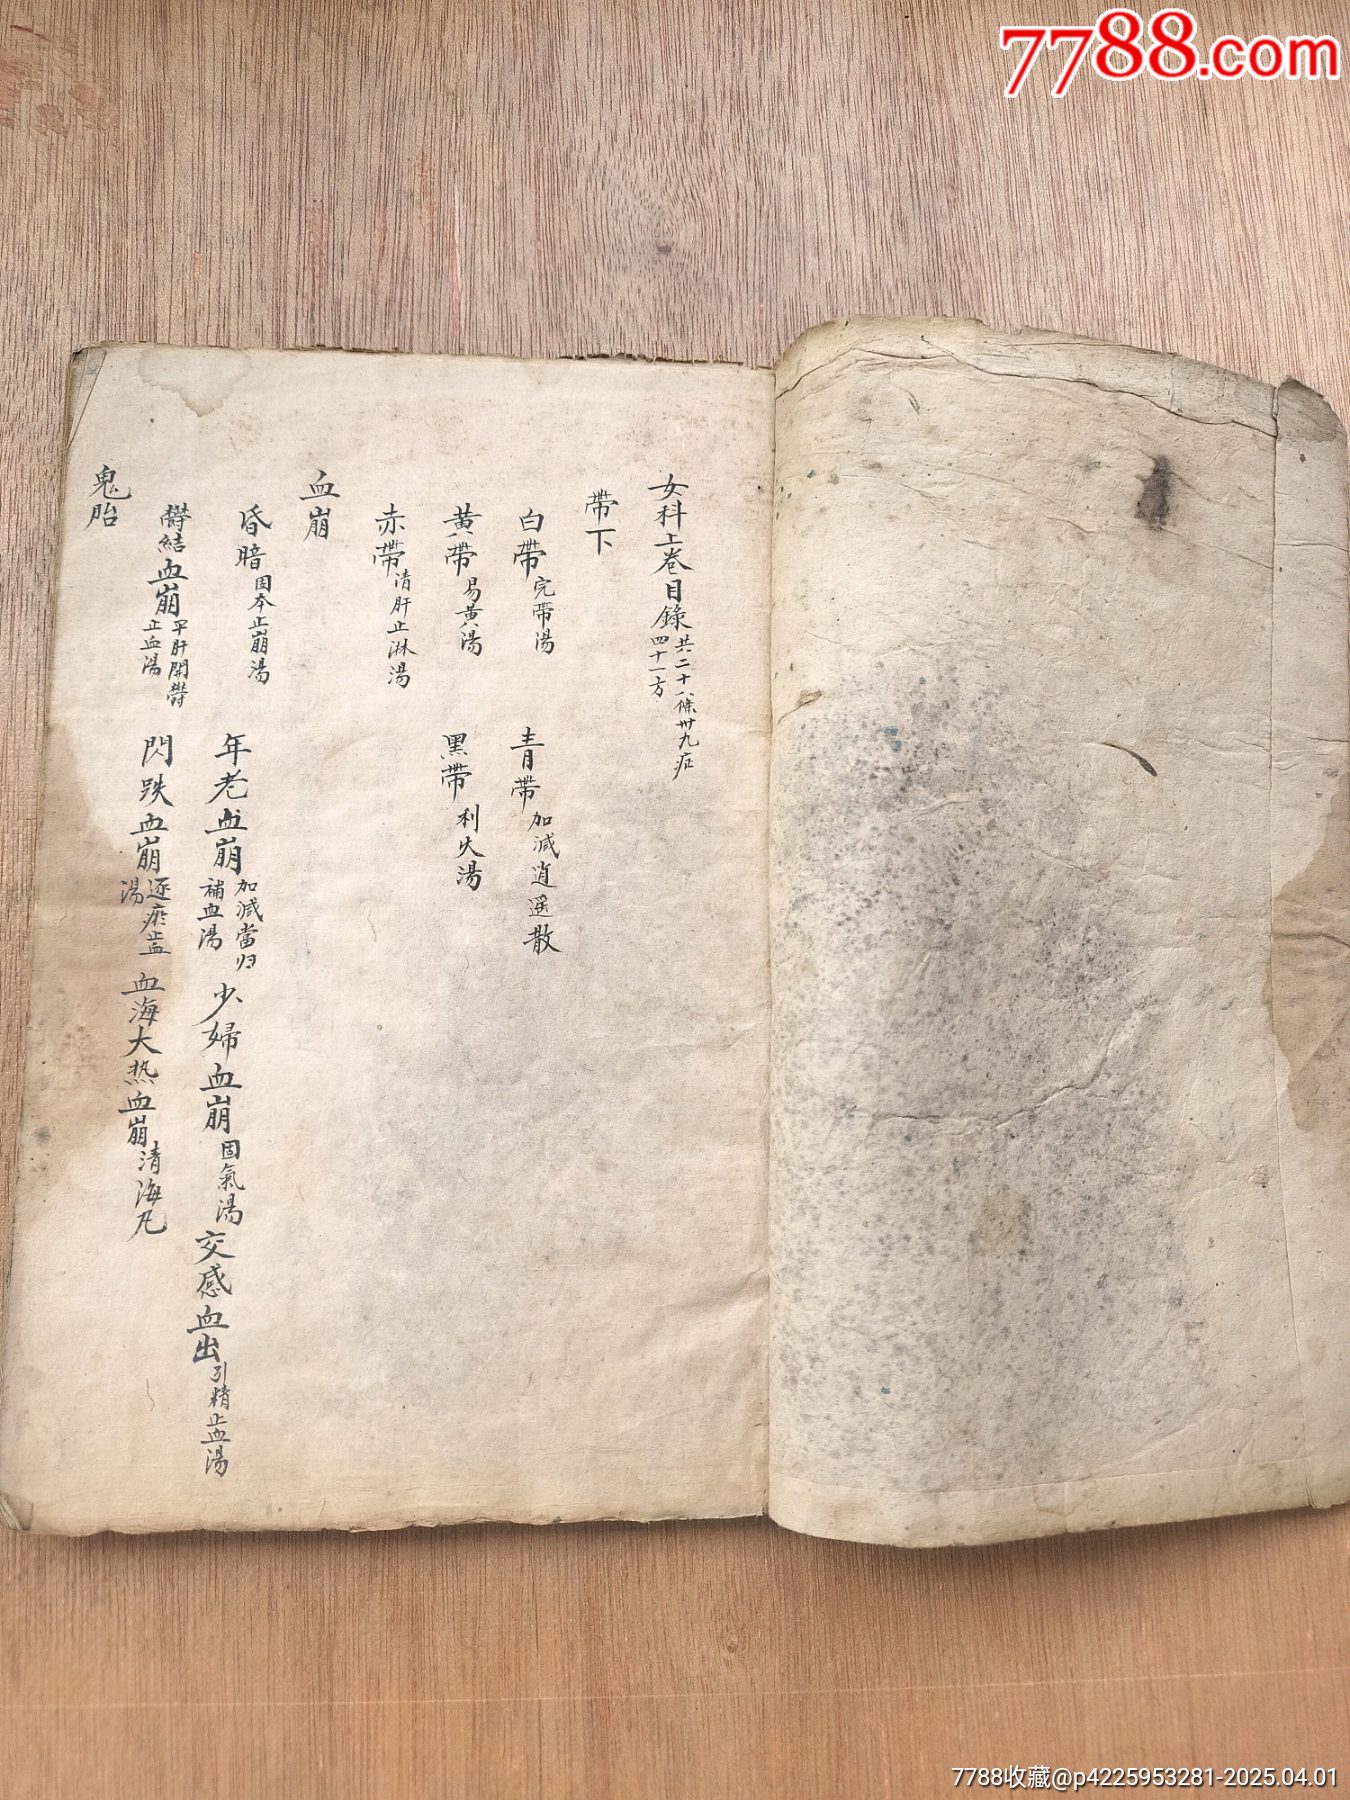 7788.com
女科上卷目錄 共二十八條卅九症四十一方
帶下
白帶 完帶湯 青帶 加減逍遥散
黃帶 易黃湯 黑帶 利火湯
赤帶 清肝止淋湯
血崩
昏暗 固本止崩湯 年老血崩 加減當归補血湯 少婦血崩 固氣湯 交感血出 引精止血湯
欝結血崩 平肝開欝止血湯 閃跌血崩 逐瘀止血湯 血海大热血崩 清海凡
鬼胎
7788收藏@p4225953281-2025.04.01